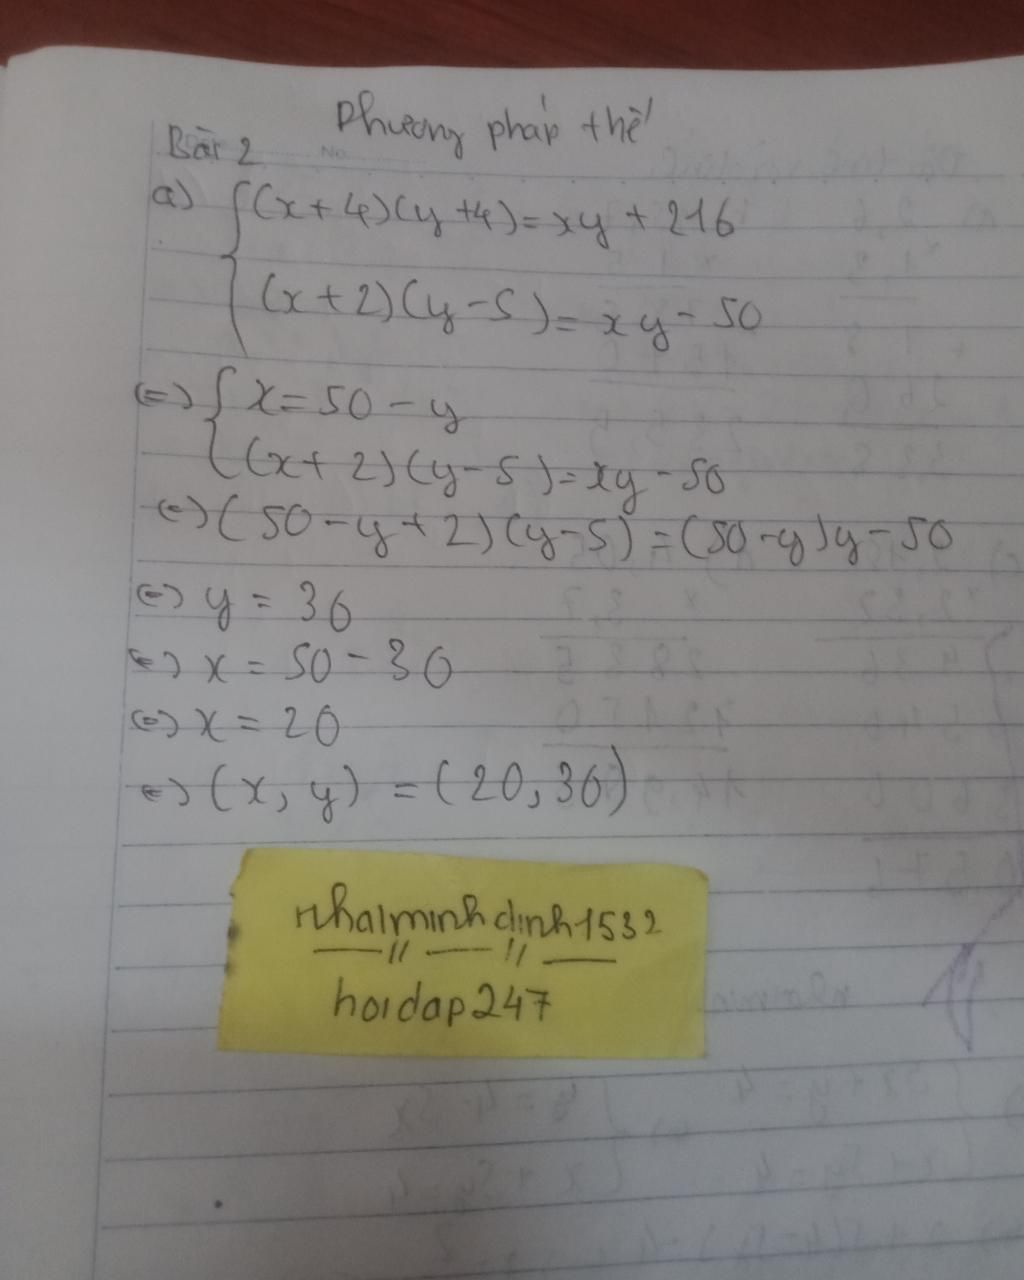 Phương pháp thế
Bài 2
a) { (x + 4)(y + 4) = xy + 216
(x + 2)(y - 5) = xy - 50
<=> { x = 50 - y
(x + 2)(y - 5) = xy - 50
<=> (50 - y + 2)(y - 5) = (50 - y)y - 50
<=> y = 30
<=> x = 50 - 30
<=> x = 20
<=> (x, y) = (20, 30)
nhaiminhdinh1532
hoidap247